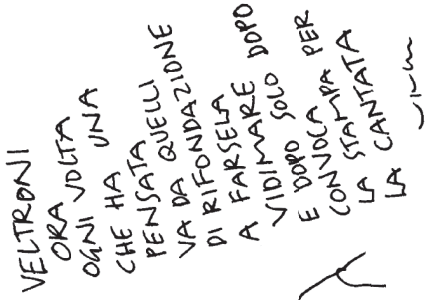 VELTRONI
ORA VOLTA
OGNI VOLTA
CHE HA UNA
PENSATA
VA DA QUELLI
DI RIFONDAZIONE
A FARSELA
VIDIMARE
E DOPO SOLO DOPO
CONVOCA
LA STAMPA PER
LA CANTATA